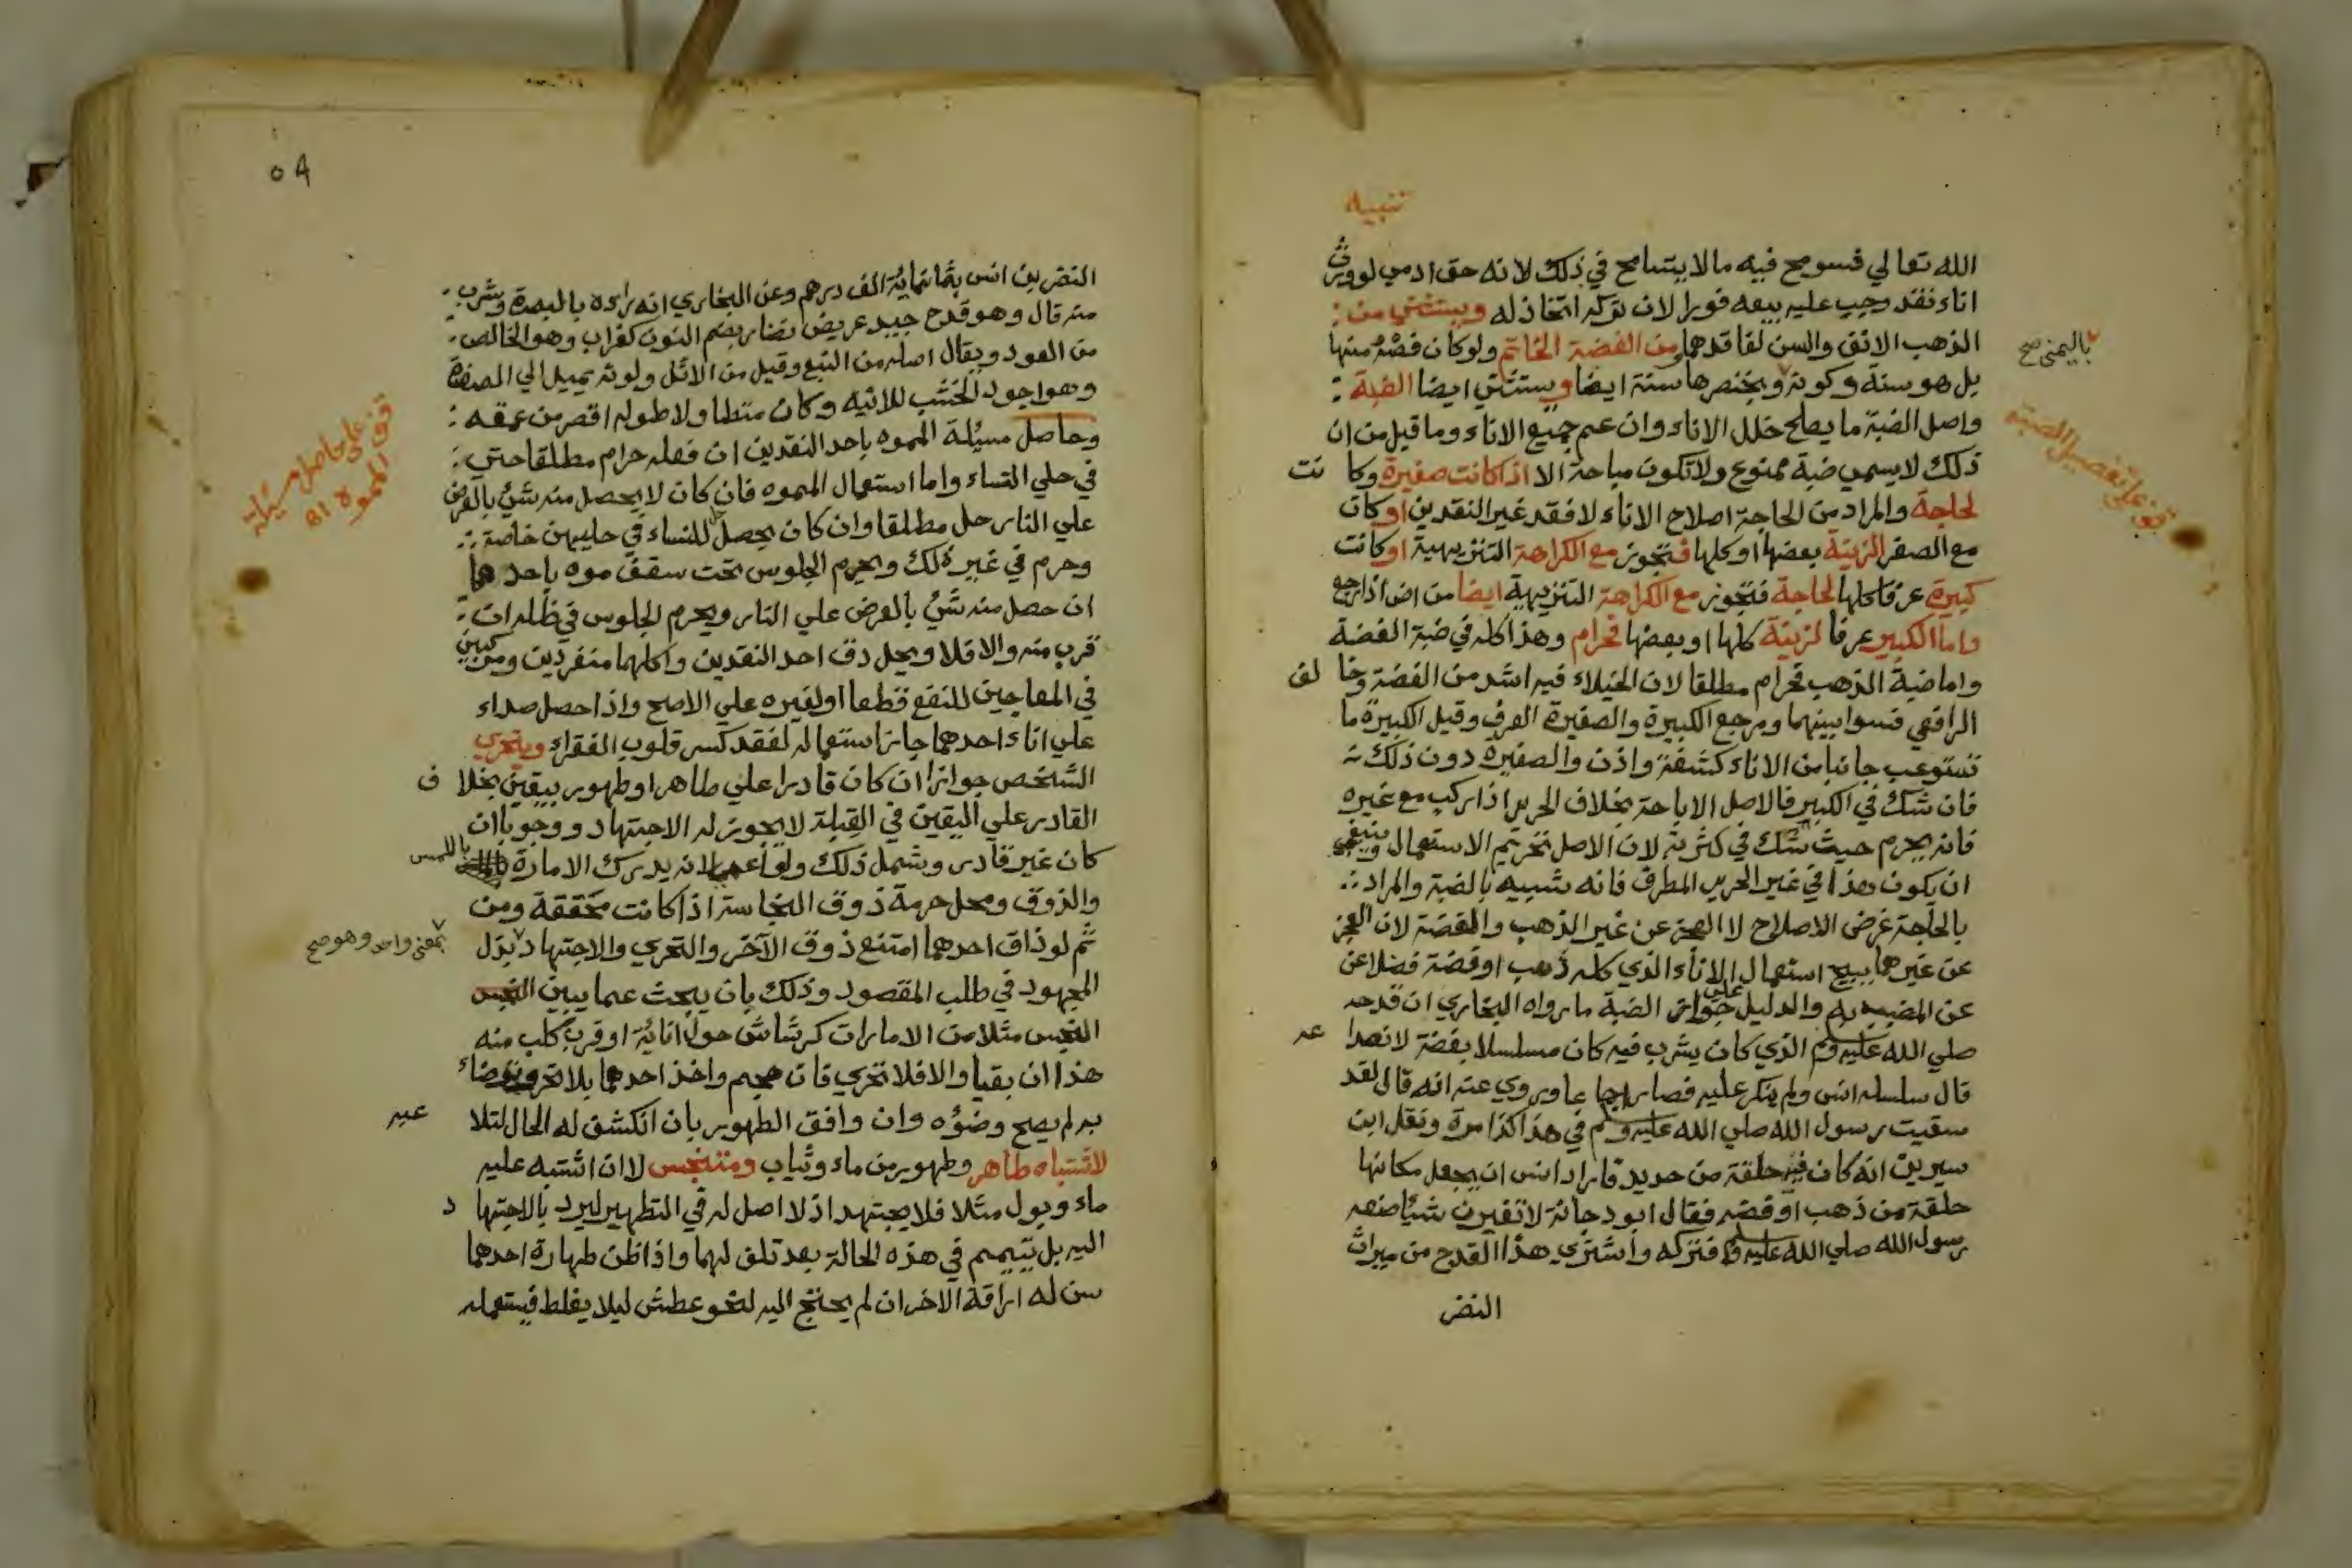 تنبيه
الله تعالي فسومح فيه مالا يتسامح في ذلك لانه حق ادمي لو ورث
اناء نقد وجب عليه بيعه فورا لان تركه اتخاذ له ويستثني من :
الذهب الانف والسن لفاقدهما ومن الفضة الخاتم ولو كان فصه منها
بل هو سنة وكونه بخنصرها سنة ايضا ويستثني ايضا الضبة :
باليمنى صح
واصل الضبة ما يصلح خلل الاناء وان عم جميع الاناء وما قيل من ان
قف علي تفصيل الضبه
ذلك لا يسمي ضبة ممنوع ولا تكون مباحة الا اذا كانت صغيرة وكا نت
لحاجة والمراد من الحاجة اصلاح الاناء لا فقد غير النقدين او كانت
مع الصغر لزينة بعضها او كلها فتجوز مع الكراهة التنزيهية او كانت
كبيرة عرفا كلها لحاجة فتجوز مع الكراهة التنزيهية ايضا من اض اذا رجع
واما الكبير عرفا لزينة كلها او بعضها فحرام وهذا كله في ضبة الفضة
واما ضبة الذهب فحرام مطلقا لان الخيلاء فيه اشد من الفضة وخا لف
الرافعي فسوا بينهما ومرجع الكبيرة والصغيرة العرف وقيل الكبيرة ما
تستوعب جانبا من الاناء كشفة واذن والصغيرة دون ذلك
فان شك في الكبير فالاصل الاباحة بخلاف الحرير اذا ركب مع غيره
فانه يحرم حيث شك في كثرته لان الاصل تحريم الاستعمال وينبغي
ان يكون هذا في غير الحرير المطرف فانه شبيه بالضبة والمراد
بالحاجة غرض الاصلاح لا العجز عن غير الذهب والفضة لان العجز
عن غيرهما يبيح استعمال الاناء الذي كله ذهب او فضة فضلا عن
عن المضبب به والدليل علي جواز الضبة ما رواه البخاري ان قدحه
صلي الله عليه وسلم الذي كان يشرب فيه كان مسلسلا بفضة لانصدا عه
قال سلسله انس ولم ينكر عليه فصار اجماعا وروي عنه انه قال لقد
سقيت رسول الله صلي الله عليه وسلم في هذا كذا مرة ونقل ابن
سيرين انه كان فيه حلقة من حديد فاراد انس ان يجعل مكانها
حلقة من ذهب او فضه فقال ابو دجانة لا تغيرن شيأ صنعه
رسول الله صلي الله عليه وسلم فتركه واشتري هذا القدح من ميراث
النضر
٥٩
النضر بن انس بثمانمائة الف درهم وعن البخاري انه راه بالبصرة وشرب
منه قال وهو قدح جيد عريض نضار بضم النون كغراب وهو الخالص
من العود ويقال اصله من النبع وقيل من الاثل ولونه يميل الي الصفرة
وهو اجود الخشب للانيه وكان متطاولا طوله اقصر من عمقه :
وحاصل مسئلة المموه باحد النقدين ان فعله حرام مطلقا حتي :
قف علي حاصل مسئلة المموه
في حلي النساء واما استعمال المموه فان كان لا يحصل منه شئ بالعرض
علي النار حل مطلقا وان كان يحصل حل للنساء في حليهن خاصة
وحرم في غير ذلك ويحرم الجلوس تحت سقف موه باحدهما
ان حصل منه شئ بالعرض علي النار ويحرم الجلوس في ظله ان :
قرب منه والا فلا ويحل دق احد النقدين واكلهما منفردين ومركبين
في المعاجين للنفع قطعا او لغيره علي الاصح واذا حصل صداء
علي اناء احدهما جاز استعماله لفقد كسر قلوب الفقراء ويتحري
الشخص جوازا ان كان قادرا علي طاهر او طهور بيقين بخلا ف
القادر علي اليقين في القبلة لا يجوز له الاجتهاد ووجوبا ان
كان غير قادر وشمل ذلك ولو اعمي لانه يدرك الامارة باللمس
والذوق ومحل حرمة ذوق النجاسة اذا كانت محققة ومن
ثم لو ذاق احدهما امتنع ذوق الآخر والتحري والاجتهاد بذل
بمعني واحد وهو صح
المجهود في طلب المقصود وذلك بان يبحث عما يبين النجس
النجس مثلا من الامارات كرشاش حول انائه او قرب كلب منه
هذا ان بقيا والا فلا تحري فان هجم واخذ احدهما بلا تحر وتوضاء
به لم يصح وضؤه وان وافق الطهور بان انكشف له الحال لتلا عبه
لاشتباه طاهر وطهور من ماء وثياب ومتنجس لا ان اشتبه عليه
ماء وبول مثلا فلا يجتهد اذ لا اصل له في التطهير ليرد بالاجتها د
اليه بل يتيمم في هذه الحالة بعد تلف لهما واذا ظن طهارة احدهما
سن له اراقة الاخر ان لم يحتج اليه لنحو عطش ليلا يغلط فيستعمله